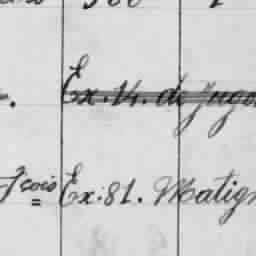 Ex. 14. de Jugo
fçois Ex: 81. Matign